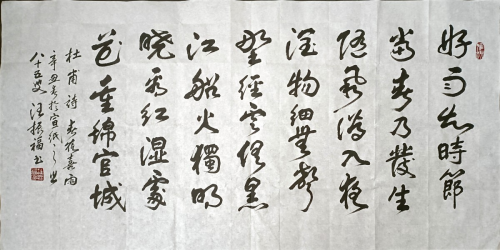 好雨知時節
當春乃發生
隨風潛入夜
潤物細無聲
野徑雲俱黑
江船火獨明
曉看紅濕處
花重錦官城
杜甫詩春夜喜雨
辛丑春於宣紙之鄉
八十五叟汪振福书